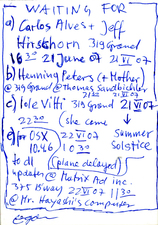 WAITING FOR
a) Carlos Alves + Jeff
Hirschhorn 319 Grand
1630 21 June 07 21 VI 07
b) Henning Peters (+ Mother)
@ 319 Grand @ Thomas Sandbichler
c) Isle Vitli 319 Grand 21 VI 07
2230 (she come
e) for OSX 22 VI 07 → Summer
10.46 1030 Solstice
to dl (plane delayed)
updates @ Matrix Ad inc.
375 Bway 22 VI 07 1130
@ Mr. Hayashi's computer